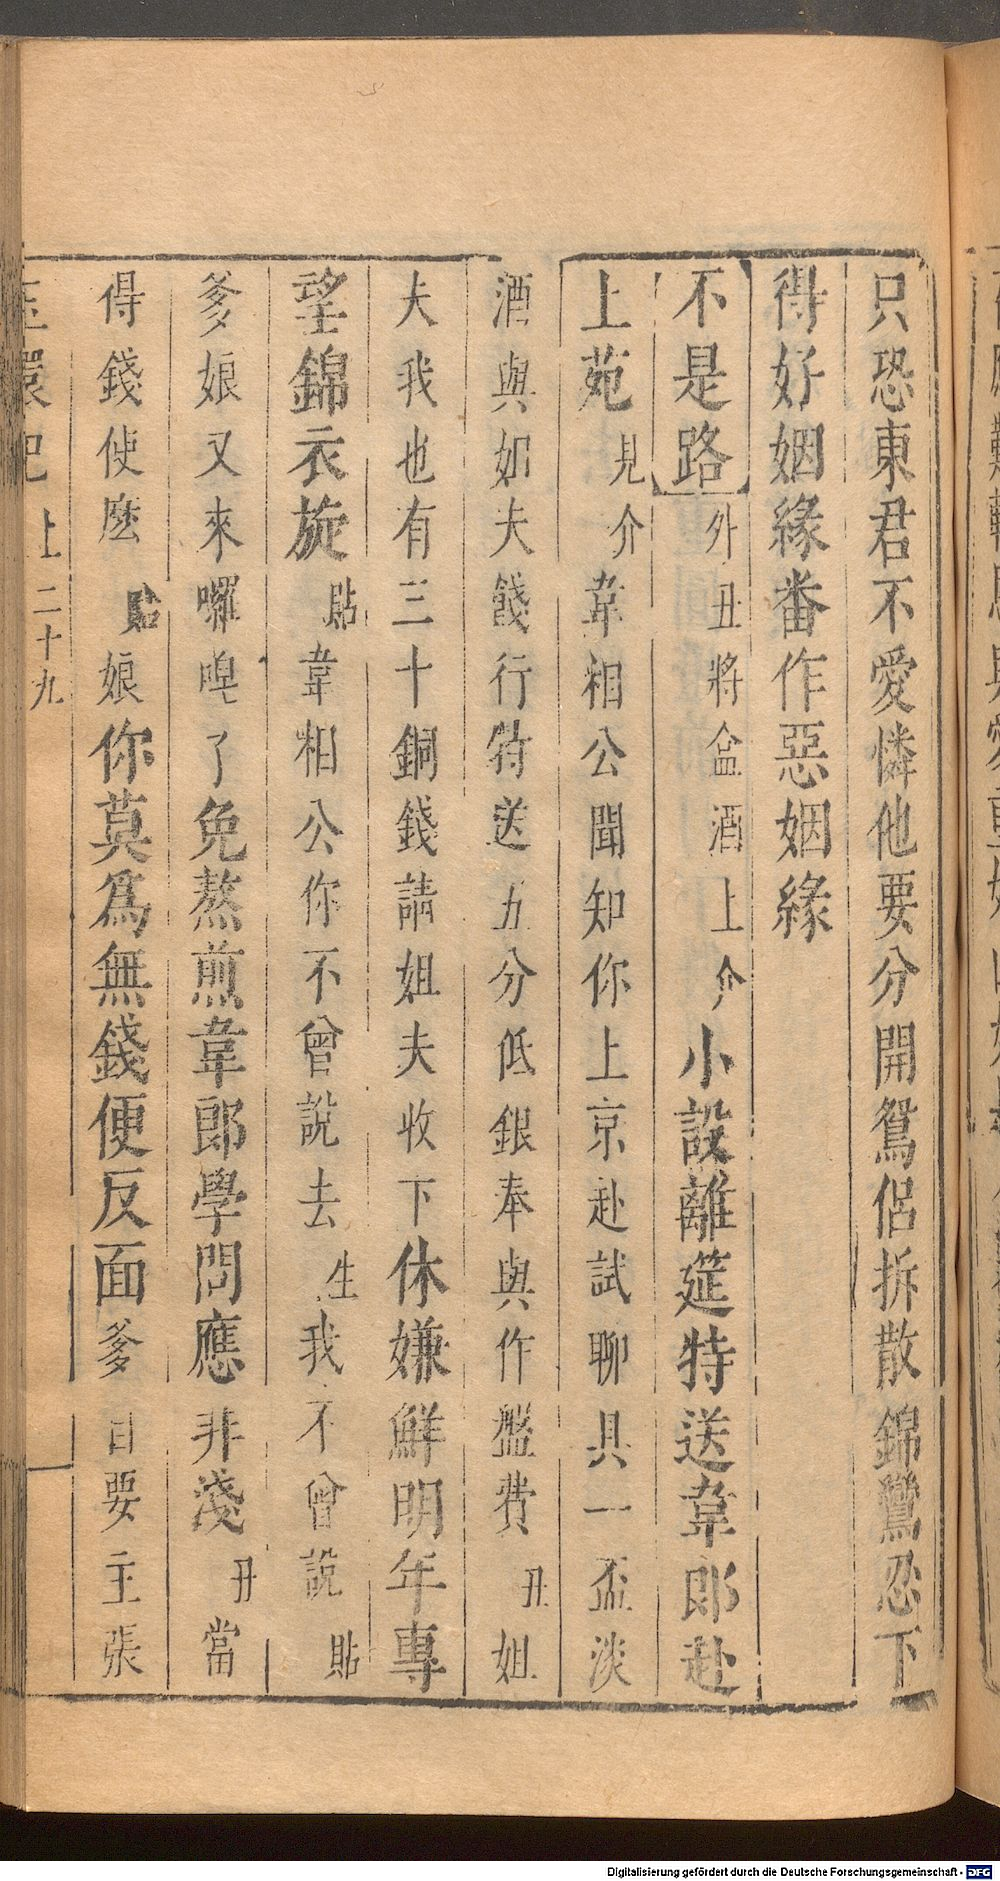 只恐東君不愛憐他要分開鴛侶拆散錦鸞忍下
得好姻緣番作惡姻緣
不是路外丑將盒酒上介小設離筵特送韋郎赴
上苑見介韋相公聞知你上京赴試聊具一盃淡
酒與姐夫餞行特送五分低銀奉與作盤費丑姐
夫我也有三十銅錢請姐夫收下休嫌鮮明年專
望錦衣旋貼韋相公你不曾說去生我不曾說貼
爹娘又來囉唣了免熬煎韋郎學問應非淺丑當
得錢使麽貼娘你莫爲無錢便反面爹自要主張
玉環記 上 二十九
Digitalisierung gefördert durch die Deutsche Forschungsgemeinschaft - DFG